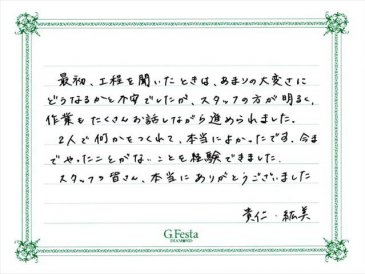 最初、工程を聞いたときは、あまりの大変さに
どうなるかと不安でしたが、スタッフの方が明るく、
作業もたくさんお話しながら進められました。
2人で何かをつくれて、本当によかったです。今ま
でやったことがないことを経験できました。
スタッフの皆さん、本当にありがとうございました
貴仁・紘美
G.Festa
DIAMOND